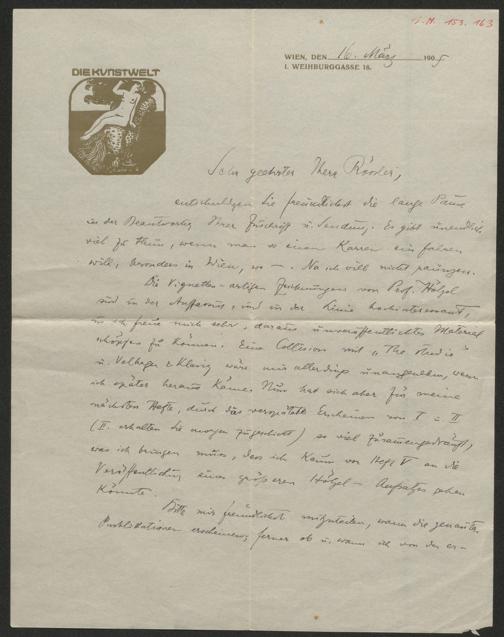 I.N. 153.163
WIEN, DEN 16. März 1905
I. WEIHBURGGASSE 18.
DIE KUNSTWELT
Sehr geehrter Herr Rössler,
entschuldigen Sie freundlichst die lange Pause
in der Beantwortg Ihrer Zuschrift u. Sendung. Es gibt unendlich
viel zu thun, wenn man so einen Karren ein fahren
will, besonders in Wien, wo —. Na ich will nicht raunzen.
Die Vignetten-artigen Zeichnungen von Prof. Hölzel
sind in der Auffassung, und in der Linie hochinteressant,
u. ich freue mich sehr, daraus unveröffentlichtes Material
schöpfen zu können. Eine Collision mit „The Studio"
u. Velhagen & Klasing wäre mir allerdings unangenehm, wenn
ich später heraus käme. Nun hat sich aber für meine
nächsten Hefte, durch das verspätete Erscheinen von I u. II
(II. erhalten Sie morgen zugeschickt) so viel zusammengedrängt,
was ich bringen muss, dass ich kaum vor Heft V an die
Veröffentlichung eines größeren Hölzel-Aufsatzes gehen
könnte.
Bitte mir freundlichst mitzuteilen, wann die genannten
Publikationen erscheinen; ferner ob u. wann ich von den er-